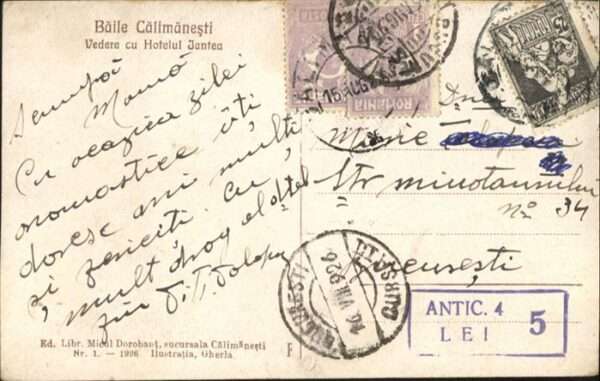 Băile Călimănești
Vedere cu Hotelul Jantea
Scumpă
Mamă
Cu ocazia zilei
onomastice îți
doresc ani mulți
și fericiți cu
mult drag al dtale
fiu
ROMANIA
Marie
Str minotaurului
No 34
București
BUCUREȘTI
10 VIII 926
ANTIC. 4
LEI 5
Ed. Libr. Micul Dorobanț, sucursala Călimănești
Nr. 1. — 1926 Ilustrația, Gherla